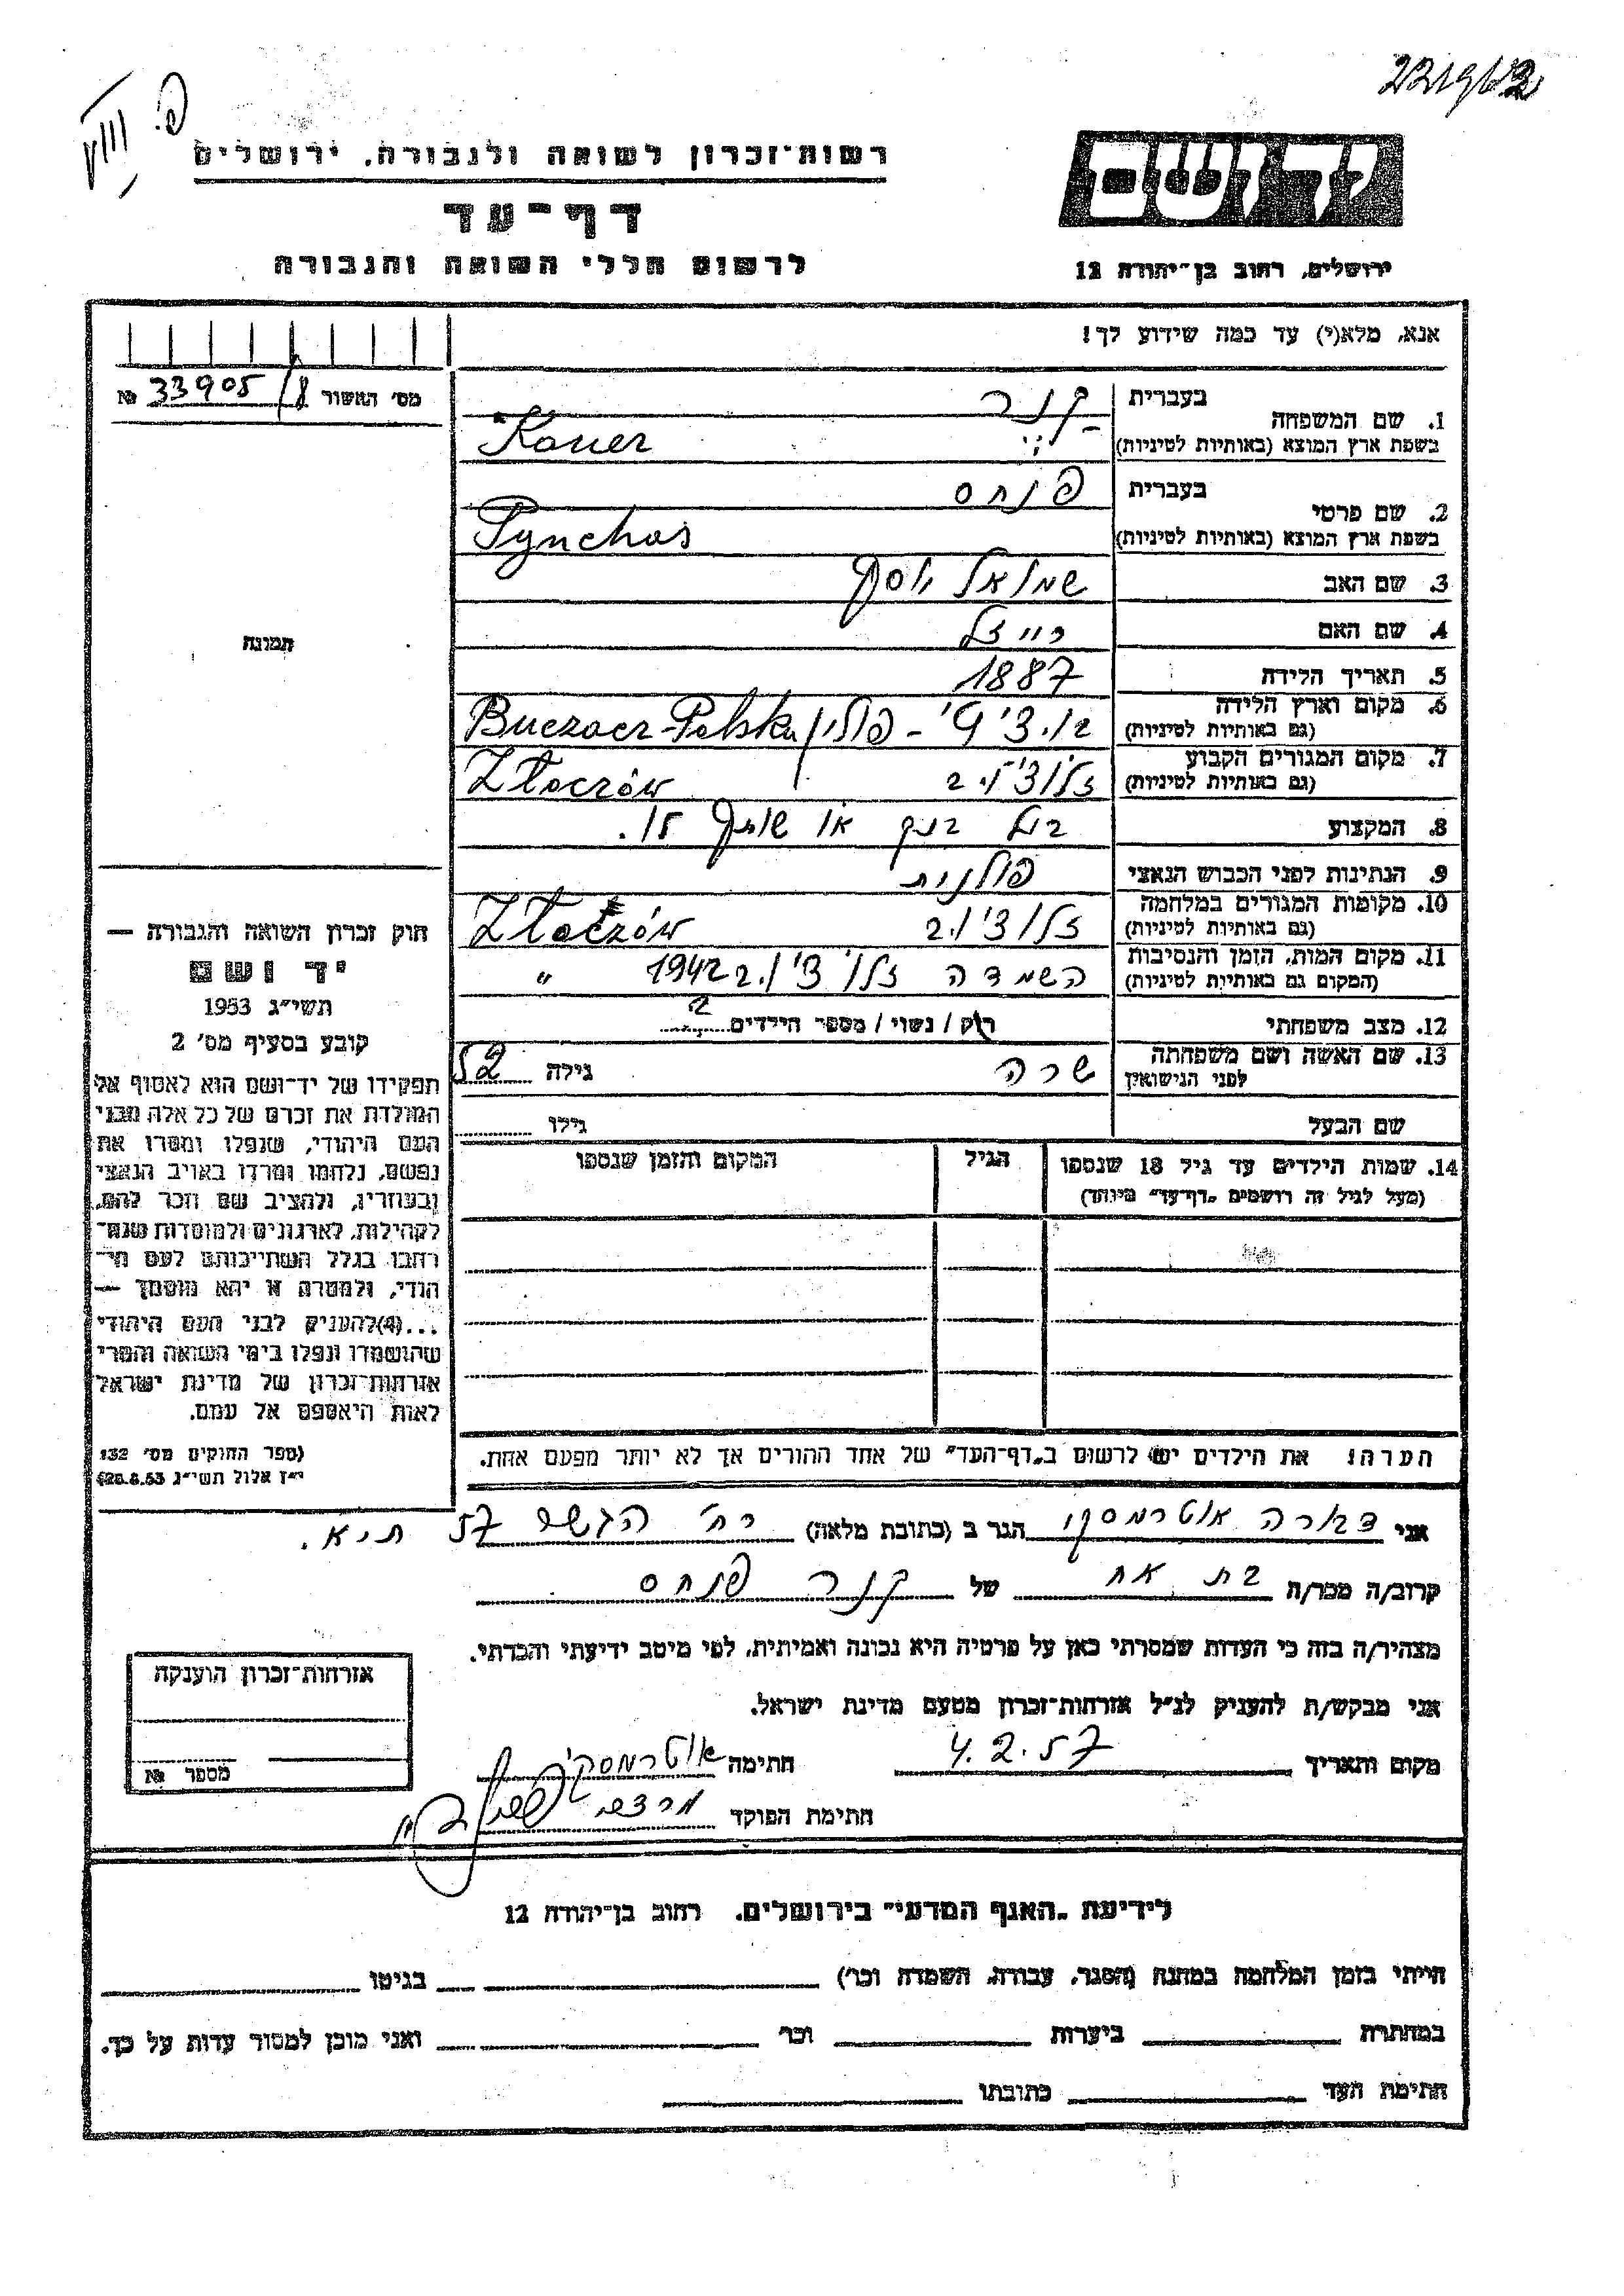 רשות־זכרון לשואה ולגבורה, ירושלים
דף־עד
לרשום חללי השואה והגבורה
יד ושם
ירושלים, רחוב בן־יהודה 12
אנא, מלא(י) עד כמה שידוע לך!
מס׳ האשור № 33905/
1. שם המשפחה
בעברית קנר
בשפת ארץ המוצא (באותיות לטיניות) Kaner
2. שם פרטי
בעברית פנחס
בשפת ארץ המוצא (באותיות לטיניות) Pynchas
3. שם האב שמואל יוסף
4. שם האם רייזל
5. תאריך הלידה 1887
6. מקום וארץ הלידה
(גם באותיות לטיניות) פולין Buczacz-Polska
7. מקום המגורים הקבוע
(גם באותיות לטיניות) זלוצ׳וב Złoczów
8. המקצוע
9. הנתינות לפני הכבוש הנאצי פולנית
10. מקומות המגורים במלחמה
(גם באותיות לטיניות) זלוצ׳וב Złoczów
11. מקום המות, הזמן והנסיבות
(המקום גם באותיות לטיניות) השמדה זלוצ׳וב 1942 "
12. מצב משפחתי רוק / נשוי / מספר הילדים 2
13. שם האשה ושם משפחתה
לפני הנישואין שרה גילה 52
שם הבעל גילו
14. שמות הילדים עד גיל 18 שנספו
(מעל לגיל זה רושמים „דף־עד" מיוחד)
הגיל
המקום והזמן שנספו
הערה! את הילדים יש לרשום ב„דף־העד" של אחד ההורים אך לא יותר מפעם אחת.
תמונה
חוק זכרון השואה והגבורה —
יד ושם
תשי״ג 1953
קובע בסעיף מס׳ 2
תפקידו של יד־ושם הוא לאסוף אל
המולדת את זכרם של כל אלה מבני
העם היהודי, שנפלו ומסרו את
נפשם, נלחמו ומרדו באויב הנאצי
ובעוזריו, ולהציב שם וזכר להם,
לקהילות, לארגונים ולמוסדות שנח־
רבו בגלל השתייכותם לעם הי־
הודי, ולמטרה זו יהא מוסמך —
...(4) להעניק לבני העם היהודי
שהושמדו ונפלו בימי השואה והמרי
אזרחות־זכרון של מדינת ישראל
לאות היאספם אל עמם.
(ספר החוקים מס׳ 132
י״ז אלול תשי״ג 28.8.53)
אני אוטרמסקי הגר ב (כתובת מלאה) רח׳ הגשר 57 ת״א.
קרוב/ה מכר/ה בת אח של קנר פנחס
מצהיר/ה בזה כי העדות שמסרתי כאן על פרטיה היא נכונה ואמיתית, לפי מיטב ידיעתי והכרתי.
אני מבקש/ת להעניק לנ״ל אזרחות־זכרון מטעם מדינת ישראל.
מקום ותאריך 4.2.57 חתימה אוטרמסקי
חתימת הפוקד
אזרחות־זכרון הוענקה
מספר №
לידיעת „האגף המדעי" בירושלים, רחוב בן־יהודה 12
הייתי בזמן המלחמה במחנה (הסגר, עבודה, השמדה וכו׳) בגיטו
במחתרת ביערות וכו׳ ואני מוכן למסור עדות על כך.
חתימת העד כתובתו